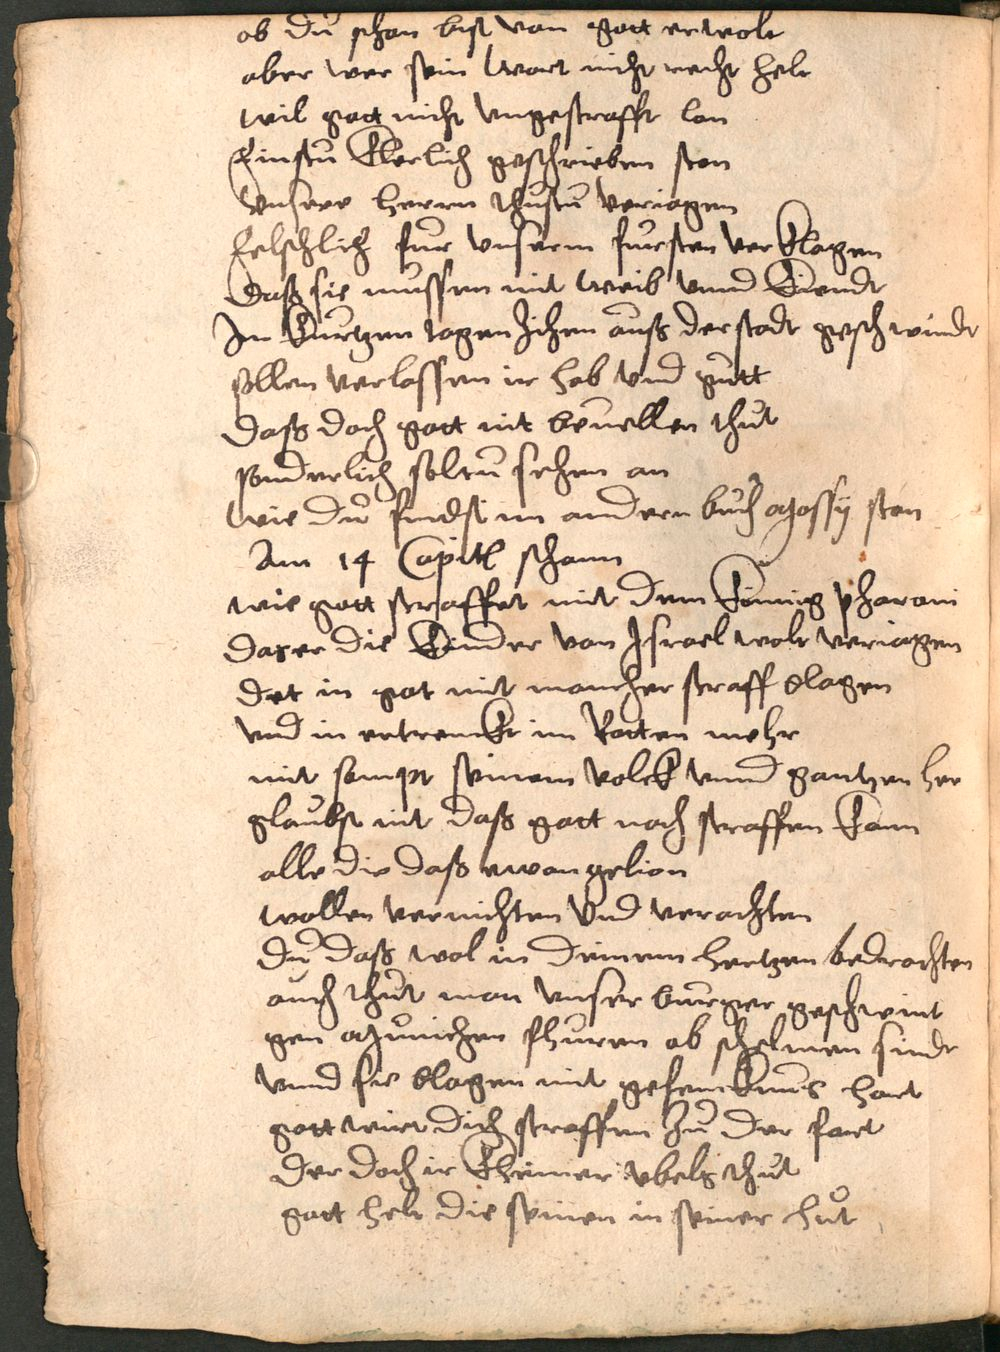 ob du schon bist von gott erwelt
aber wer sein wort nicht recht helt
wil gott nicht vngestrafft lan
Finstu klerlich geschrieben stan
vnsere herrn thustu veriagen
felschlich fur vnserm fursten verklagen
Daß sie mussen mit weib vnnd kiendt
In kurtzen tagen zihen auß der stadt geschwindt
sollen verlassen ir hab vnd gutt
daß doch gott nit beuellen thut
sonderlich soltu sehen an
wie du findst im andern buch Mossy stan
Am 14 Capitel schonn
wie gott straffet mit dem könnig pharoni
das er die kinder von Israel wolt veriagen
det in got mit mancher straff blagen
vnd in ertrenckt im Rotten mehr
mit sampt seinem volck vnnd gantzen her
glaubst nit daß gott noch straffen kann
alle die daß ewangelion
wollen vernichten vnd verachten
du daß wol in deinem hertzen bedrachten
auch thut man vnser burger geschwint
gen Munichen fhuren ob schelmen sindt
vnnd sie blagen mit gefencknus hart
gott wirt dich straffen zu der fart
der doch ir kheiner vbels thut
gott helt die seinen in seiner hut